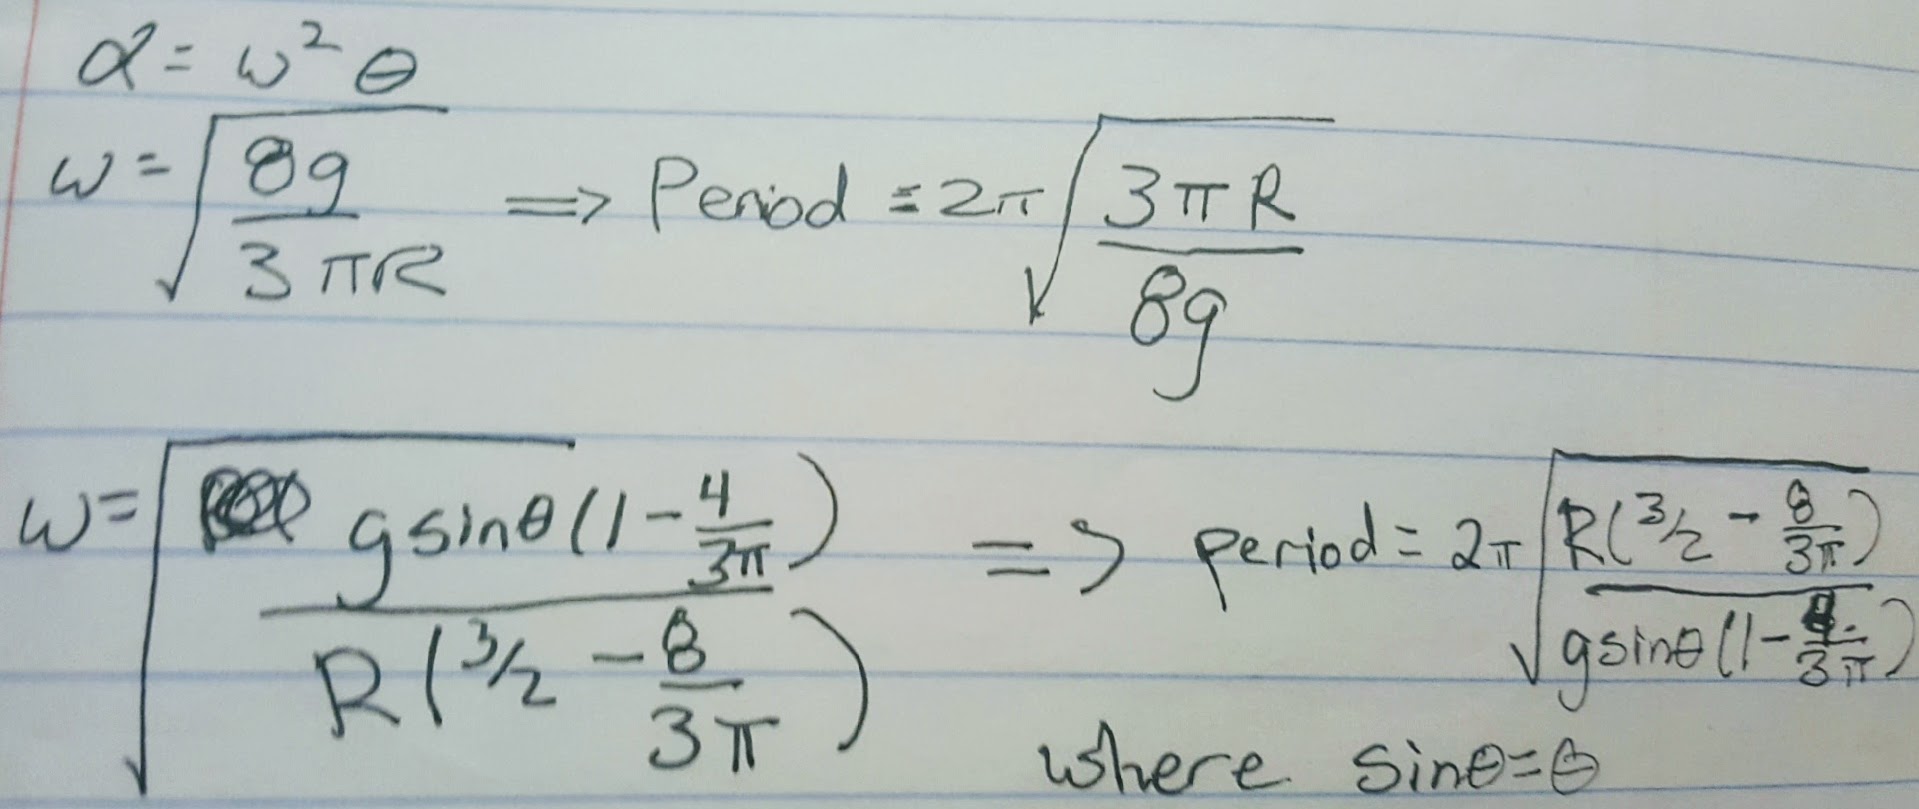 α = ω² θ
ω = √(8g / 3πR) ⟹ Period = 2π √(3πR / 8g)
ω = √(g sinθ (1 - 4/3π) / R(3/2 - 8/3π)) ⟹ period = 2π √(R(3/2 - 8/3π) / g sinθ (1 - 4/3π))
where sinθ = θ